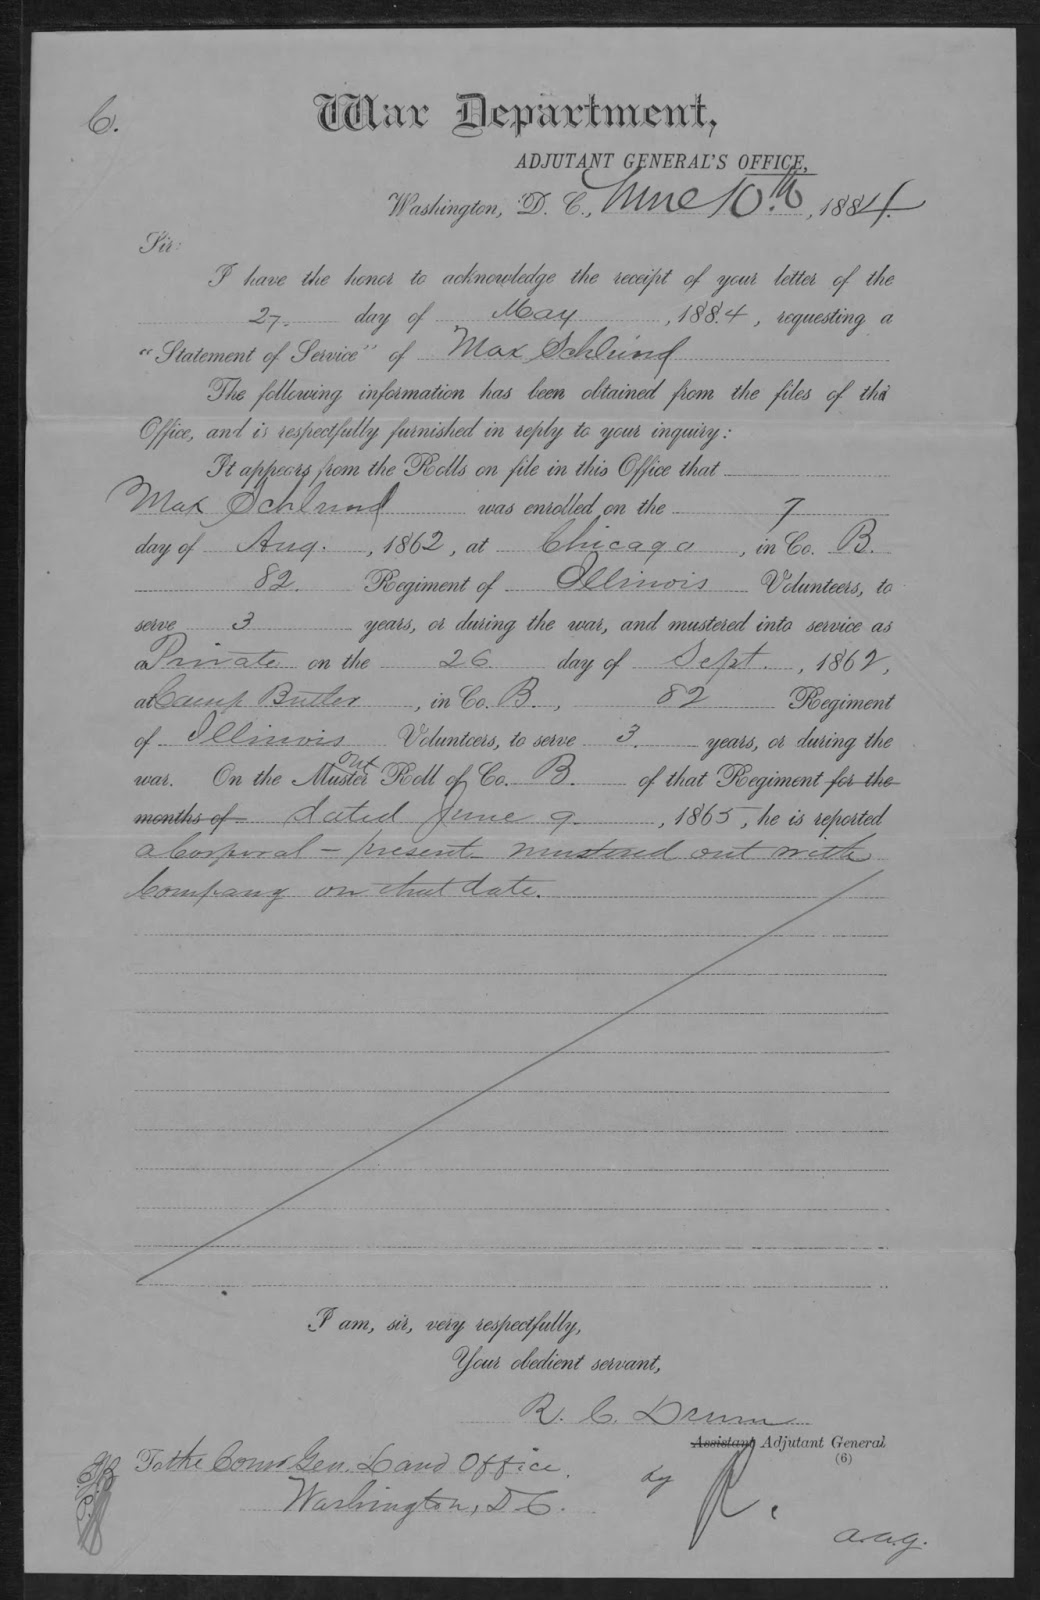 C.
War Department,
ADJUTANT GENERAL'S OFFICE,
Washington, D. C., June 10th, 1884.
Sir:
I have the honor to acknowledge the receipt of your letter of the
27. day of May, 1884, requesting a
"Statement of Service" of Max Schlund
The following information has been obtained from the files of this
Office, and is respectfully furnished in reply to your inquiry:
It appears from the Rolls on file in this Office that
Max Schlund was enrolled on the 7
day of Aug., 1862, at Chicago, in Co. B.
82. Regiment of Illinois Volunteers, to
serve 3 years, or during the war, and mustered into service as
a Private on the 26 day of Sept., 1862,
at Camp Butler, in Co. B., 82 Regiment
of Illinois Volunteers, to serve 3. years, or during the
war. On the Muster out Roll of Co. B. of that Regiment for the
months of dated June 9, 1865, he is reported
a Corporal - present - mustered out with
Company on that date.
I am, sir, very respectfully,
Your obedient servant,
R. C. Drum
Assistant Adjutant General
(6)
To the Comr Gen. Land Office.
Washington, D.C.
by R.
a.a.g.